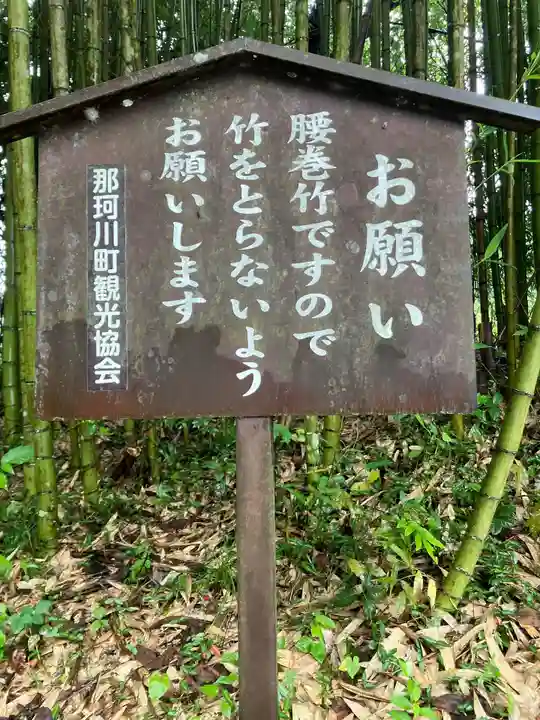 お願い
腰巻竹ですので
竹をとらないよう
お願いします
那珂川町観光協会